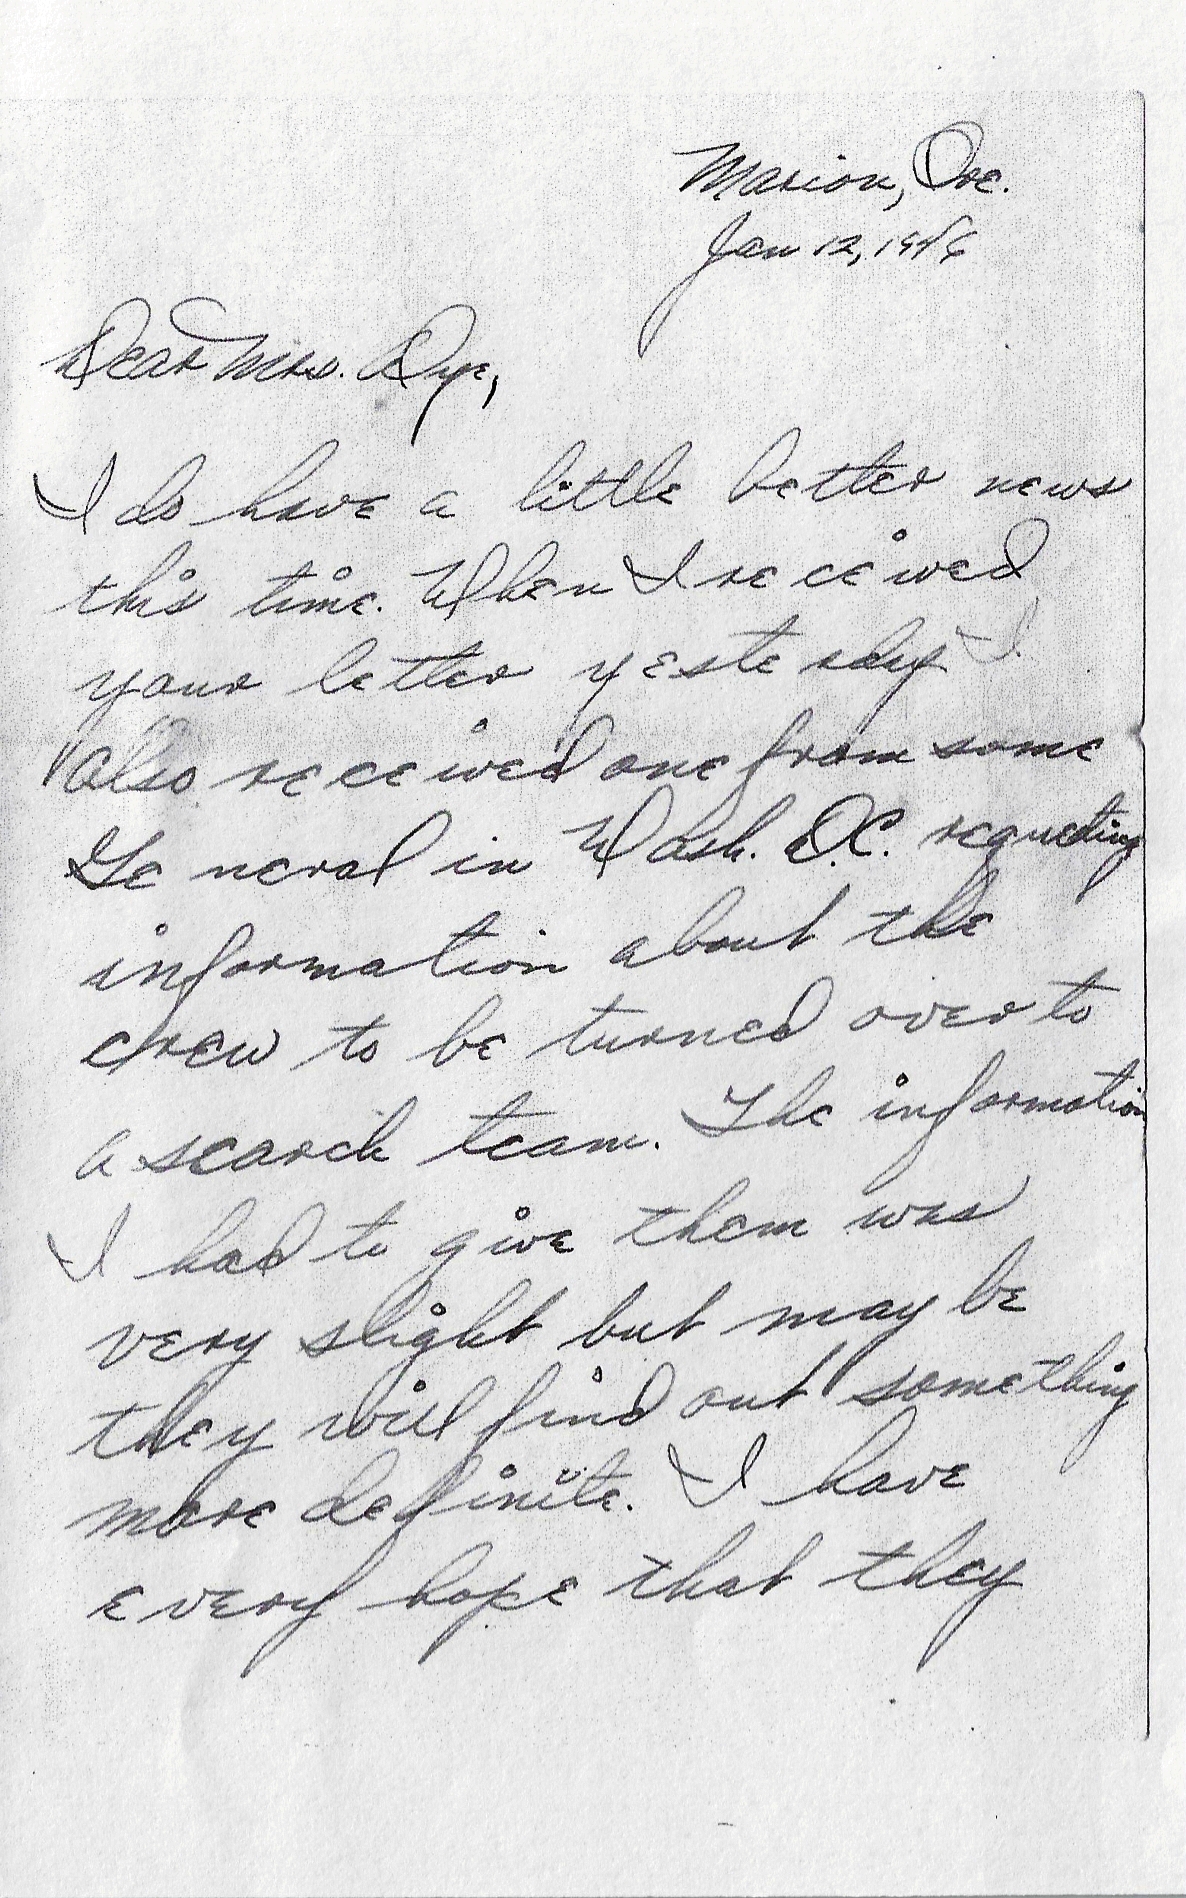 Marion, Ore.
Jan 12, 1946
Dear Mrs. Dye,
I do have a little better news
this time. When I received
your letter yesterday I
also received one from some
General in Wash. D.C. requesting
information about the
crew to be turned over to
a search team. The information
I had to give them was
very slight but may be
they will find out something
more definite. I have
every hope that they